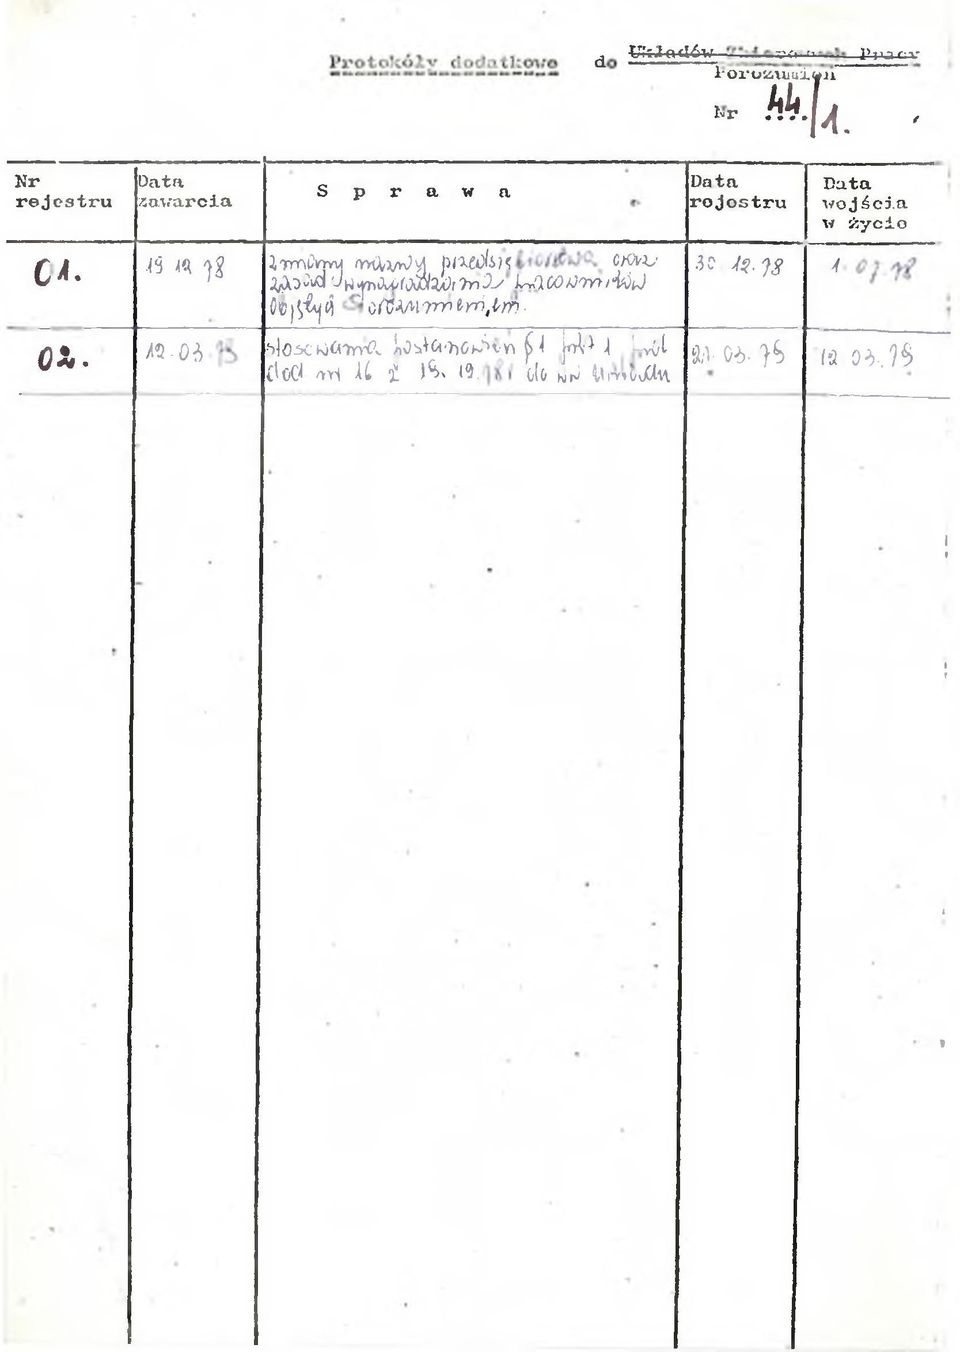 Protokóły dodatkowe do Układów Zbiorowych Pracy
Porozumień
Nr 44/1.
Nr rejestru
Data zawarcia
S p r a w a
Data rejestru
Data wejścia w życie
01.
19 12 78
zmiany nazwy przedsiębiorstwa oraz
zasad wynagradzania pracowników
objętych Porozumieniem
30 12.78
1 07.78
02.
12.03 79
stosowania postanowień §1 pkt 1 prot
dod nr 16 z 19. 12 78 do
21 03. 79
12 03. 79